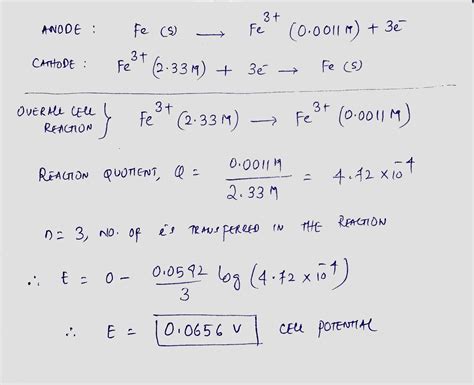 ANODE : Fe (s) ⟶ Fe³⁺ (0.0011 M) + 3e⁻
CATHODE : Fe³⁺ (2.33 M) + 3e⁻ ⟶ Fe (s)
OVERALL CELL REACTION } Fe³⁺ (2.33 M) ⟶ Fe³⁺ (0.0011 M)
REACTION QUOTIENT, Q = 0.0011 M / 2.33 M = 4.72 × 10⁻⁴
n = 3, NO. OF e⁻s TRANSFERRED IN THE REACTION
∴ E = 0 - 0.0592 / 3 log (4.72 × 10⁻⁴)
∴ E = 0.0656 V CELL POTENTIAL